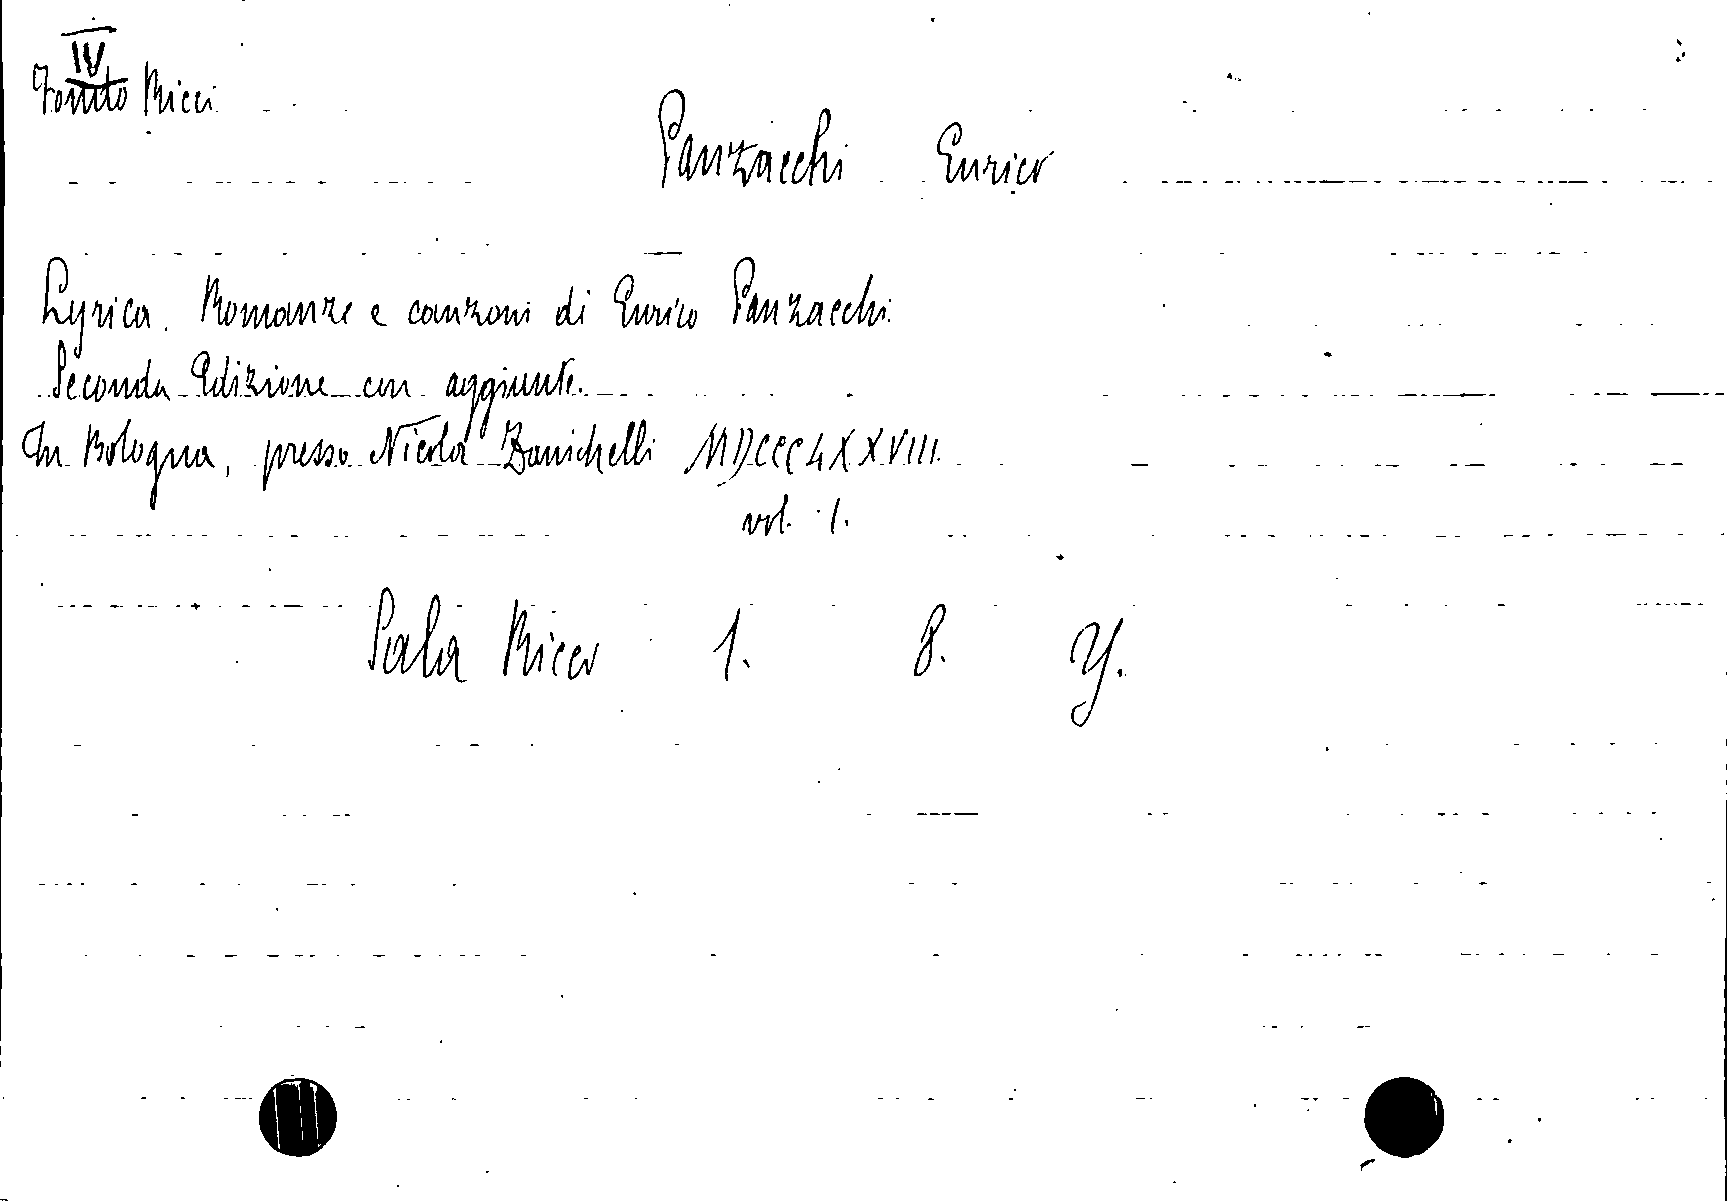 IV
Fondo Ricci
Panzacchi Enrico
Lyrica. Romanze e canzoni di Enrico Panzacchi.
Seconda Edizione con aggiunte.
In Bologna, presso Nicola Zanichelli MDCCCLXXVIII.
vol. 1.
Sala Ricci 1. 8. Y.